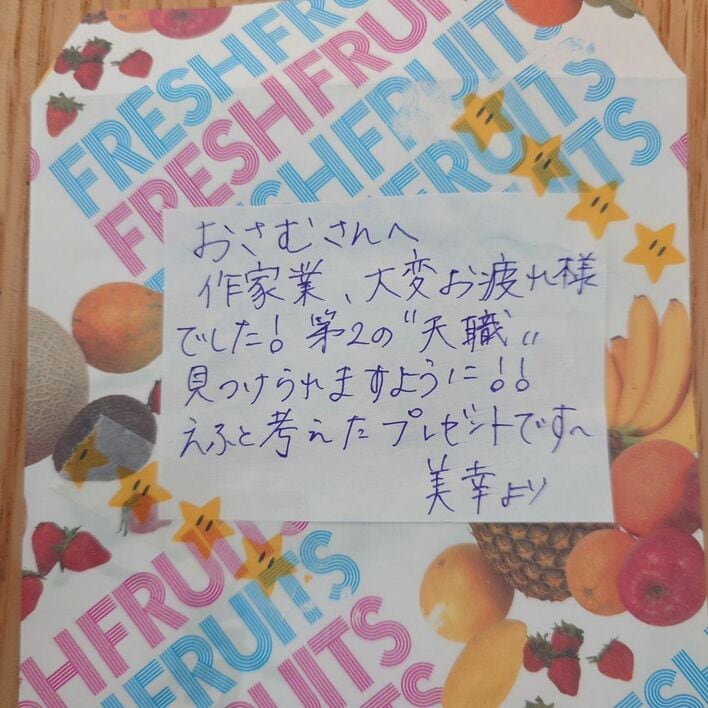 FRESH FRUITS
FRESH FRUITS
FRESH FRUITS
FRUITS
おさむさんへ
作家業、大変お疲れ様
でした！第2の"天職"
見つけられますように！！
えふと考えたプレゼントです〜
美幸より
HFRUITS
FRUITS
SHFRUITS
FRESH